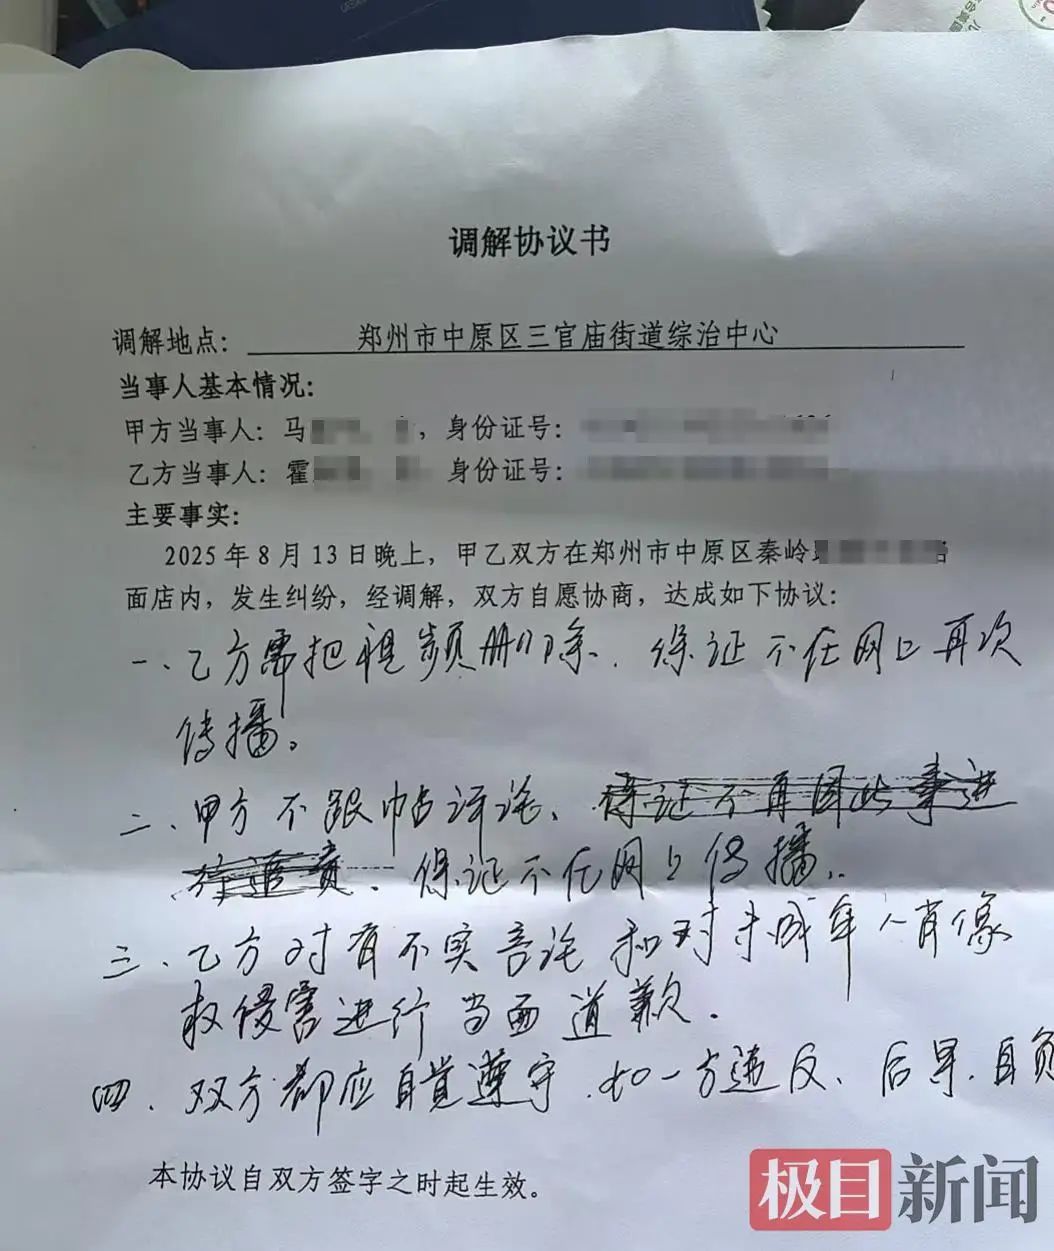 调解协议书
调解地点：郑州市中原区三官庙街道综治中心
当事人基本情况：
甲方当事人：马 ，身份证号：
乙方当事人：霍 身份证号：
主要事实：
2025年8月13日晚上，甲乙双方在郑州市中原区秦岭
面店内，发生纠纷，经调解，双方自愿协商，达成如下协议：
一、乙方需把视频删除，保证不在网上再次
传播。
二、甲方不跟帖评论、保证不再因此事进
行追责、保证不在网上传播。
三、乙方对有不实言论和对未成年人肖像
权侵害进行当面道歉。
四、双方都应自觉遵守，如一方违反、后果自负
本协议自双方签字之时起生效。
极目新闻